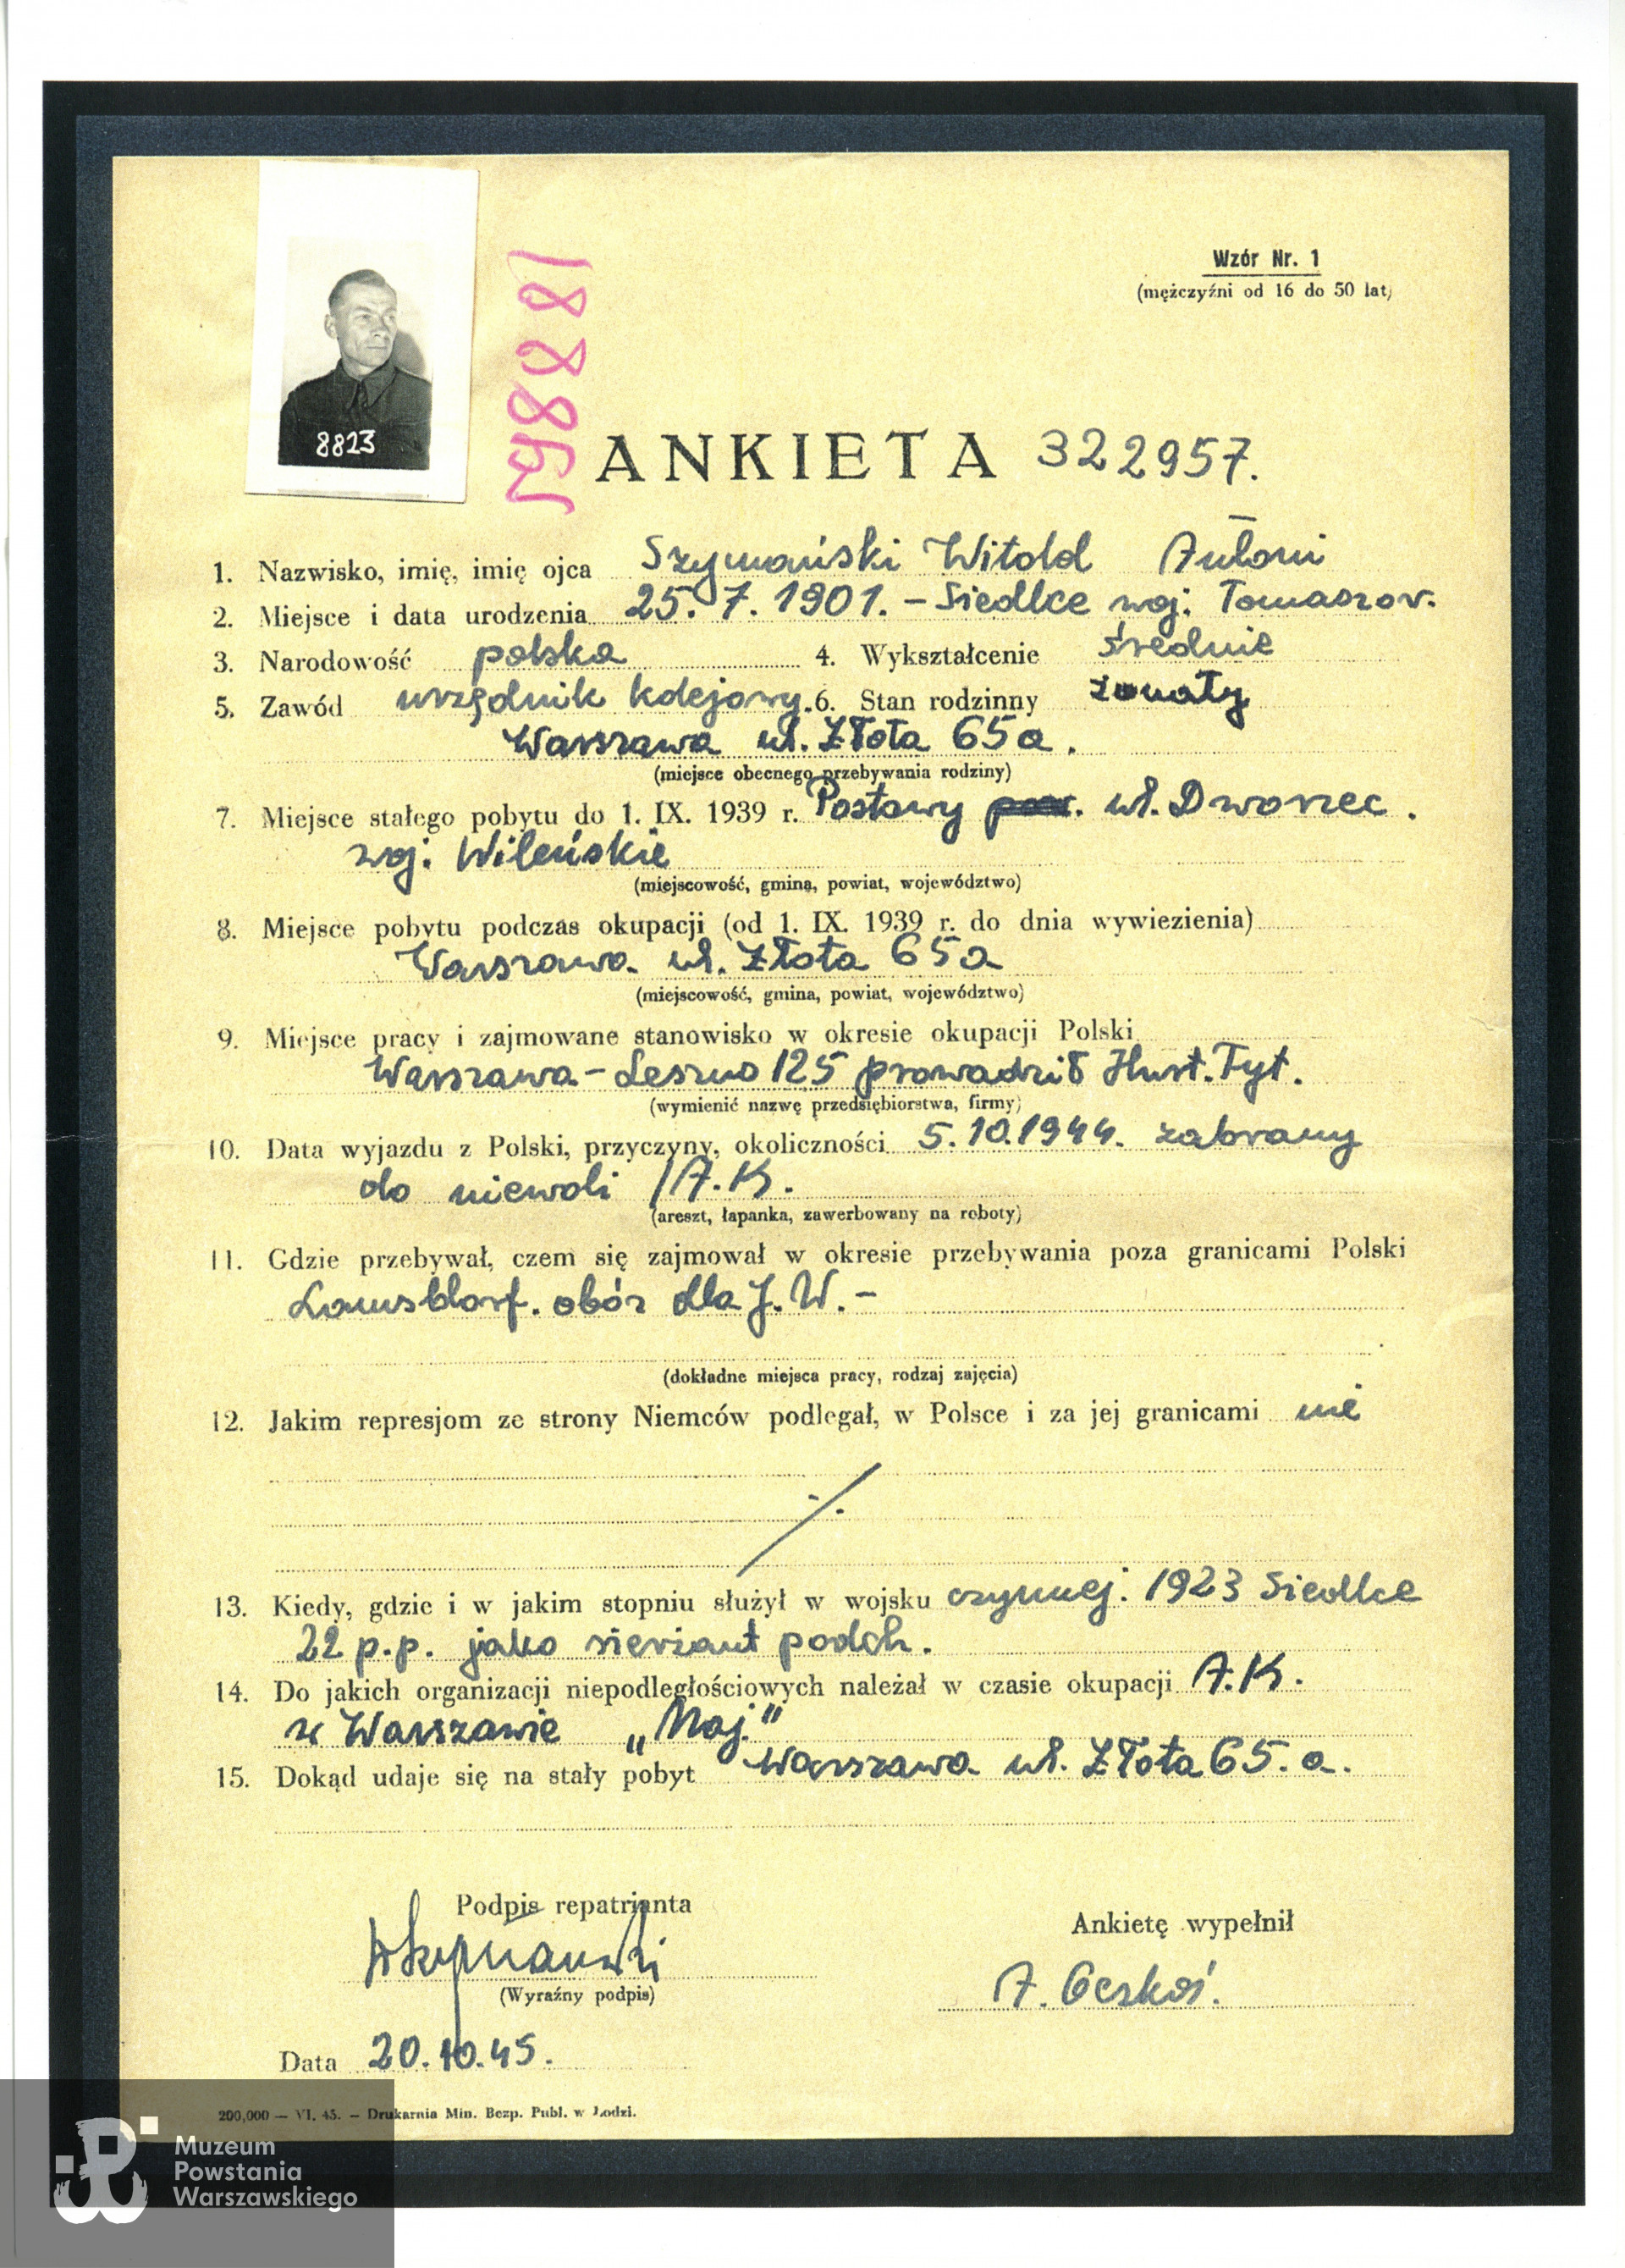 Wzór Nr. 1
(mężczyźni od 16 do 50 lat)
8823
ANKIETA 322957.
1. Nazwisko, imię, imię ojca Szymański Witold Antoni
2. Miejsce i data urodzenia 25.7.1901. - Siedlce woj. Tomaszow.
3. Narodowość polska 4. Wykształcenie średnie
5. Zawód urzędnik kolejowy. 6. Stan rodzinny żonaty
Warszawa ul. Złota 65a.
(miejsce obecnego przebywania rodziny)
7. Miejsce stałego pobytu do 1. IX. 1939 r. Postawy ul. Dworzec.
woj. Wileńskie
(miejscowość, gmina, powiat, województwo)
8. Miejsce pobytu podczas okupacji (od 1. IX. 1939 r. do dnia wywiezienia)
Warszawa ul. Złota 65a
(miejscowość, gmina, powiat, województwo)
9. Miejsce pracy i zajmowane stanowisko w okresie okupacji Polski
Warszawa - Leszno 125 prowadził Hurt. Tyt.
(wymienić nazwę przedsiębiorstwa, firmy)
10. Data wyjazdu z Polski, przyczyny, okoliczności 5.10.1944. zabrany
do niewoli /A.K.
(areszt, łapanka, zawerbowany na roboty)
11. Gdzie przebywał, czem się zajmował w okresie przebywania poza granicami Polski
Lamsdorf. obóz dla J.W. -
(dokładne miejsca pracy, rodzaj zajęcia)
12. Jakim represjom ze strony Niemców podlegał, w Polsce i za jej granicami nie
13. Kiedy, gdzie i w jakim stopniu służył w wojsku czynnej. 1923 Siedlce
22 p.p. jako sierżant podch.
14. Do jakich organizacji niepodległościowych należał w czasie okupacji A.K.
w Warszawie „Maj"
15. Dokąd udaje się na stały pobyt Warszawa ul. Złota 65.a.
Podpis repatrianta
WSzymański
(Wyraźny podpis)
Ankietę wypełnił
A.
Data 20.10.45.
200,000 — VI. 45. — Drukarnia Min. Bezp. Publ. w Łodzi.
Muzeum
Powstania
Warszawskiego